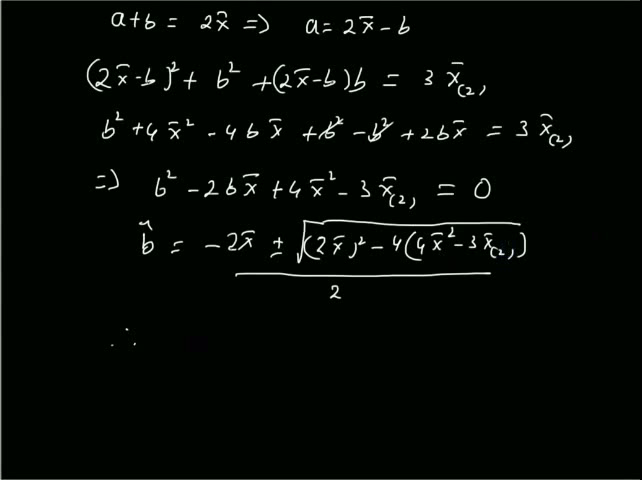 a+b = 2x̄ => a = 2x̄ - b
(2x̄-b)² + b² + (2x̄-b)b = 3 x̄₍₂₎
b² + 4x̄² - 4bx̄ + b² - b² + 2bx̄ = 3 x̄₍₂₎
=> b² - 2bx̄ + 4x̄² - 3x̄₍₂₎ = 0
b̂ = (-2x̄ ± √((2x̄)² - 4(4x̄² - 3x̄₍₂₎))) / 2
∴